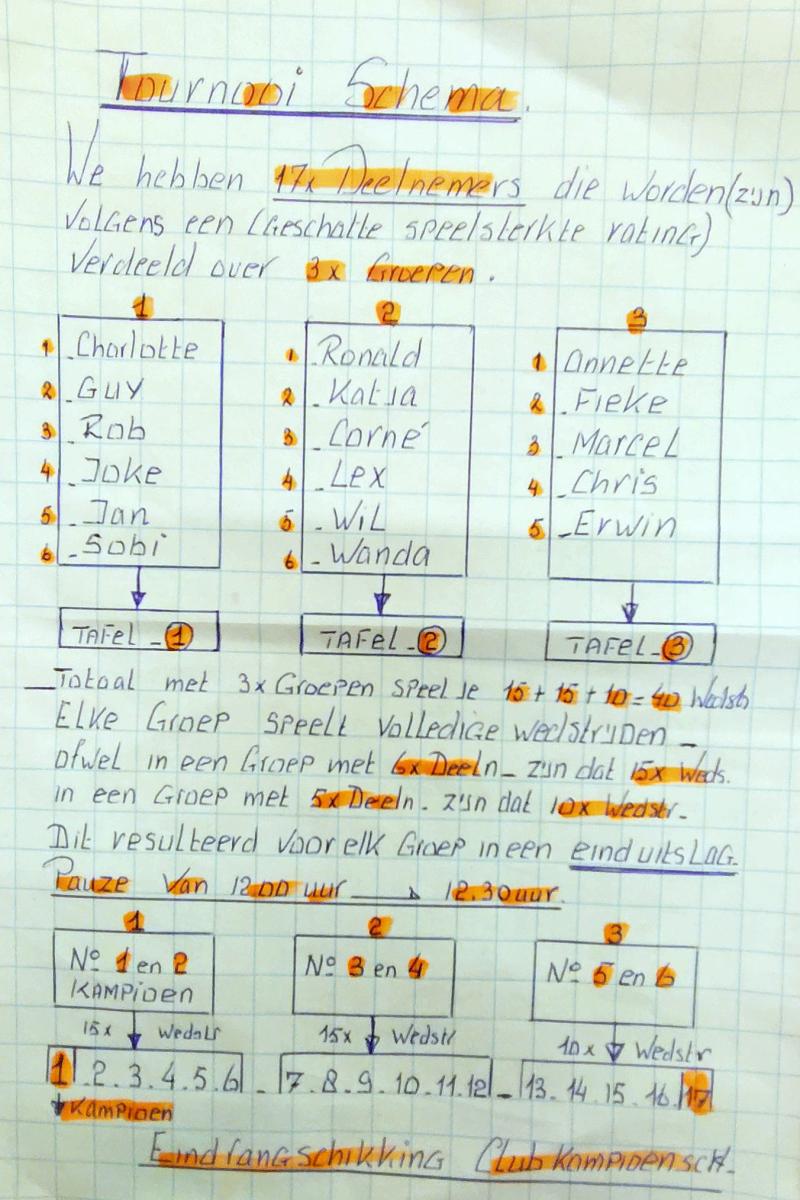 Tournooi Schema.
We hebben 17x Deelnemers die worden(zijn)
volgens een (geschatte speelsterkte rating)
verdeeld over 3x Groepen.
1 2 3
1 - Charlotte
2 - Guy
3 - Rob
4 - Joke
5 - Jan
6 - Sobi
1 - Ronald
2 - Katja
3 - Corné
4 - Lex
5 - Wil
6 - Wanda
1 Annette
2 - Fieke
3 - Marcel
4 - Chris
5 - Erwin
TAFEL - 1 TAFEL - 2 TAFEL - 3
- Totaal met 3x Groepen speel je 15 + 15 + 10 = 40 Wedstr
Elke Groep speelt volledige wedstrijden -
ofwel in een Groep met 6x Deeln - zijn dat 15x Weds.
in een Groep met 5x Deeln - zijn dat 10x Wedstr -
Dit resulteerd voor elk Groep in een einduitslag.
Pauze van 12.00 uur → 12.30 uur.
1 2 3
No 1 en 2
KAMPioen
No 3 en 4
No 5 en 6
15x Wedstr 15x Wedstr 10x Wedstr
1 . 2 . 3 . 4 . 5 . 6 - 7 . 8 . 9 . 10 . 11 . 12 - 13 . 14 . 15 . 16 . 17
Kampioen
Eindrangschikking Clubkampioensch.